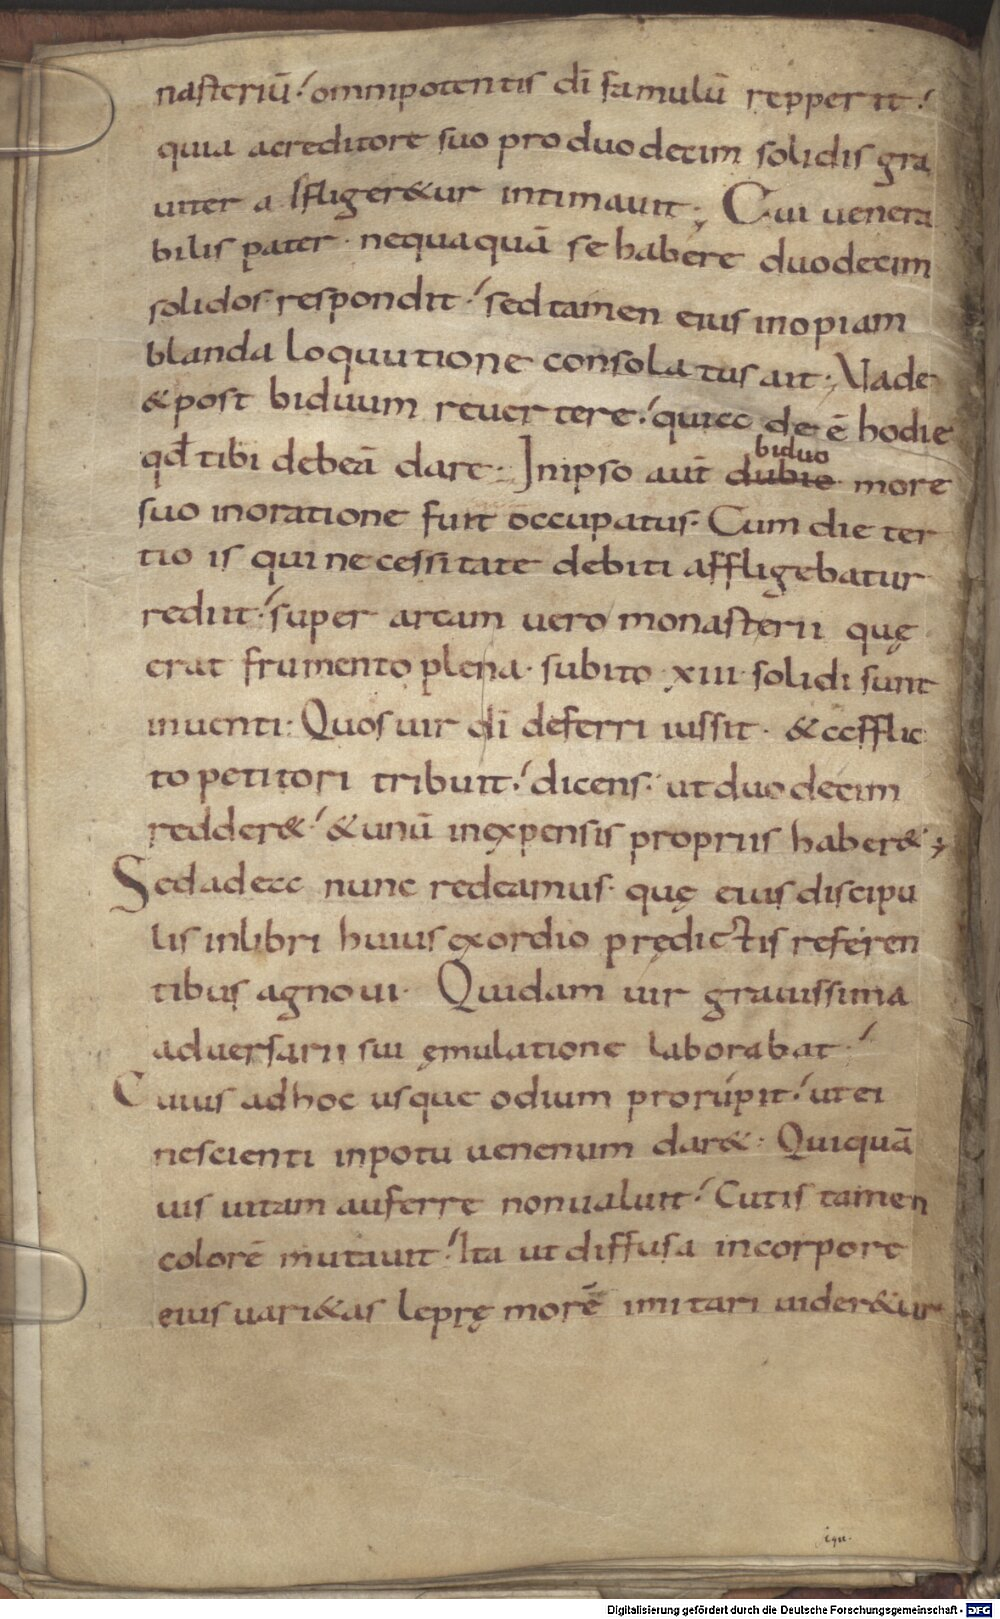 nasteriū! omnipotentis dī famulū repperit!
quia acreditore suo pro duodecim solidis gra
uiter a ffliger&ur intimauit; Cui uenera
bilis pater · nequaquā se habere duodecim
solidos respondit! sed tamen eius inopiam
blanda loquutione consolatus ait; Vade
& post biduum reuertere! quiec de ē hodie
qđ tibi debeā dare· In ipso aūt dubio biduo more
suo inoratione fuit occupatus· Cum die ter
tio is qui necessitate debiti affligebatur
rediit! super arcam uero monasterii quę
erat frumento plena· subito xiii solidi sunt
inuenti· Quos uir dī deferri iussit · & ccfflic
to petitori tribuit! dicens· ut duodecim
redder&! & unū inexpensis propriis haber&;
Sed adecc nunc redeamus· quę eius discipu
lis inlibri huius exordio prędictis referen
tibus agnoui· Quidam uir grauissima
aduersarii sui ęmulatione laborabat!
Cuius adhoc usque odium prorúpit! ut ei
nescienti inpotu uenenum dar&· Quiquā
uis uitam auferre non ualuit! Cutis tamen
colorē mutauit! Ita ut diffusa incorpore
eius uari&as leprę morē imitari uider&ur
Digitalisierung gefördert durch die Deutsche Forschungsgemeinschaft - DFG